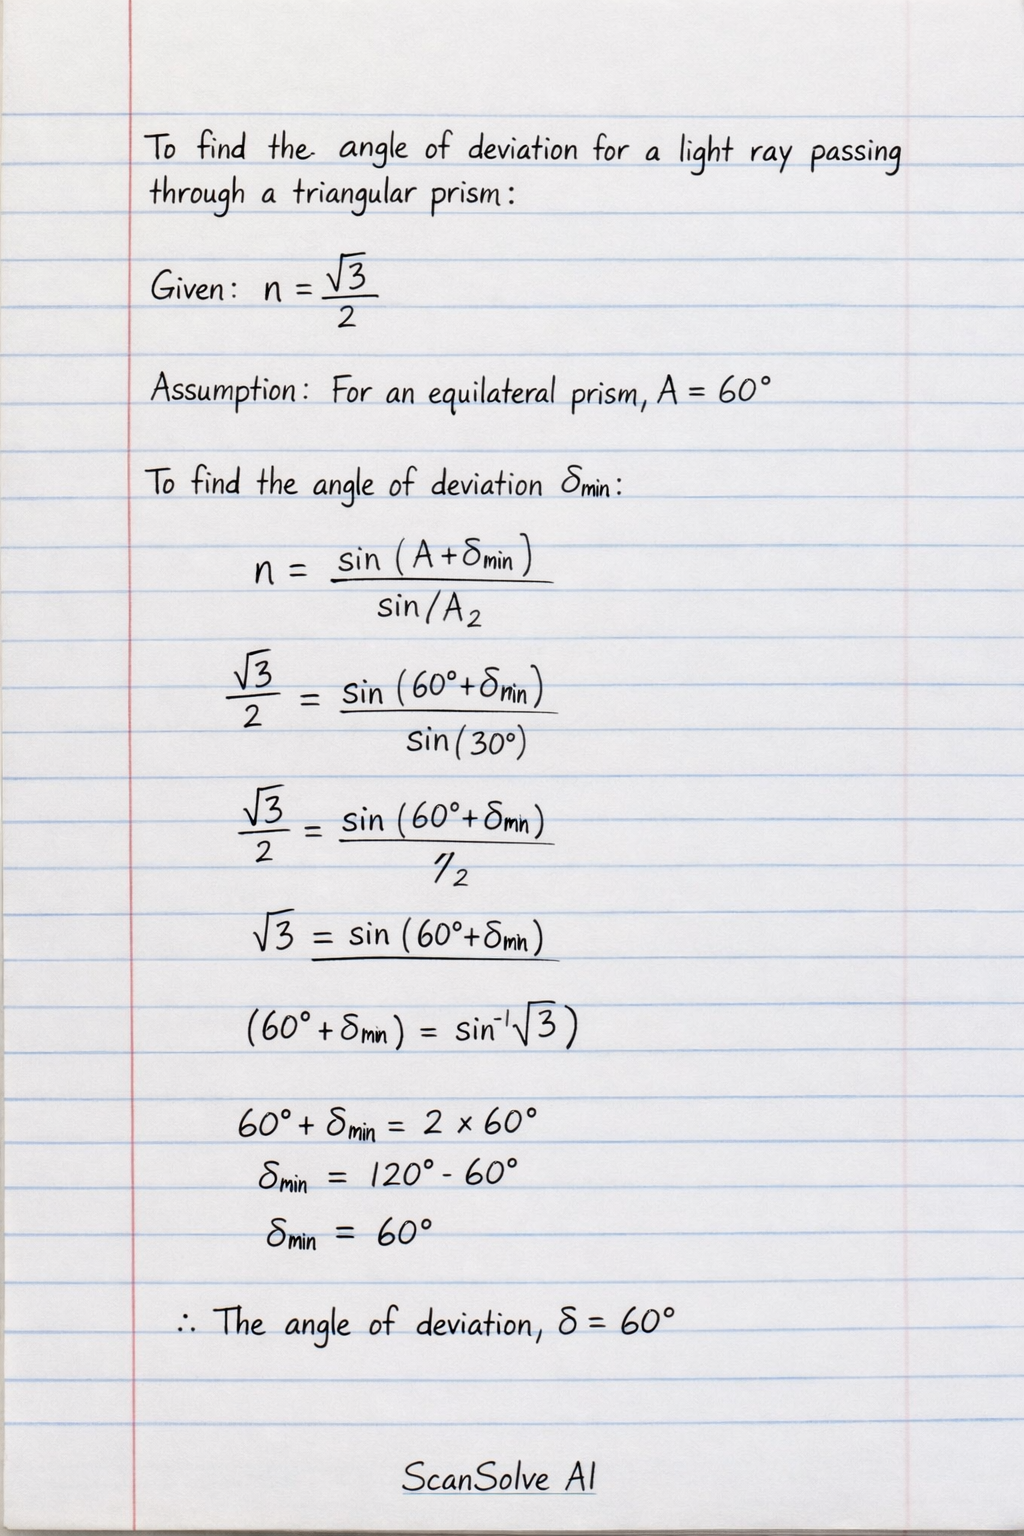 To find the angle of deviation for a light ray passing
through a triangular prism:
Given: n = √3/2
Assumption: For an equilateral prism, A = 60°
To find the angle of deviation δmin:
n = sin (A+δmin) / sin/A2
√3/2 = sin (60°+δmin) / sin(30°)
√3/2 = sin (60°+δmin) / 1/2
√3 = sin (60°+δmin)
(60°+δmin) = sin⁻¹√3)
60°+ δmin = 2 × 60°
δmin = 120° - 60°
δmin = 60°
∴ The angle of deviation, δ = 60°
ScanSolve AI